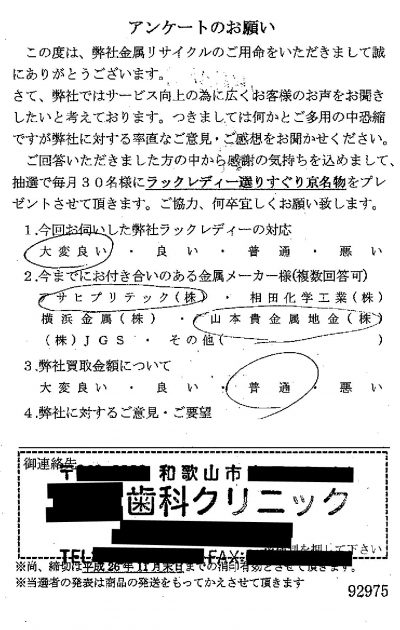 アンケートのお願い
この度は、弊社金属リサイクルのご用命をいただきまして誠
にありがとうございます。
さて、弊社ではサービス向上の為に広くお客様のお声をお聞き
したいと考えております。つきましては何かとご多用の中恐縮
ですが弊社に対する率直なご意見・ご感想をお聞かせください。
ご回答いただきました方の中から感謝の気持ちを込めまして、
抽選で毎月３０名様にラックレディー選りすぐり京名物をプレ
ゼントさせて頂きます。ご協力、何卒宜しくお願い致します。
１.今回お伺いした弊社ラックレディーの対応
大変良い ・ 良い ・ 普通 ・ 悪い
２.今までにお付き合いのある金属メーカー様(複数回答可)
アサヒプリテック(株) ・ 相田化学工業(株)
横浜金属(株) ・ 山本貴金属地金(株)
(株)ＪＧＳ ・ その他( )
３.弊社買取金額について
大変良い ・ 良い ・ 普通 ・ 悪い
４.弊社に対するご意見・ご要望
御連絡先
〒 和歌山市
歯科クリニック
TEL FAX:
を押して下さい
※尚、締切は平成26年11月末日までの消印有効とさせて頂きます。
※当選者の発表は商品の発送をもってかえさせて頂きます
92975